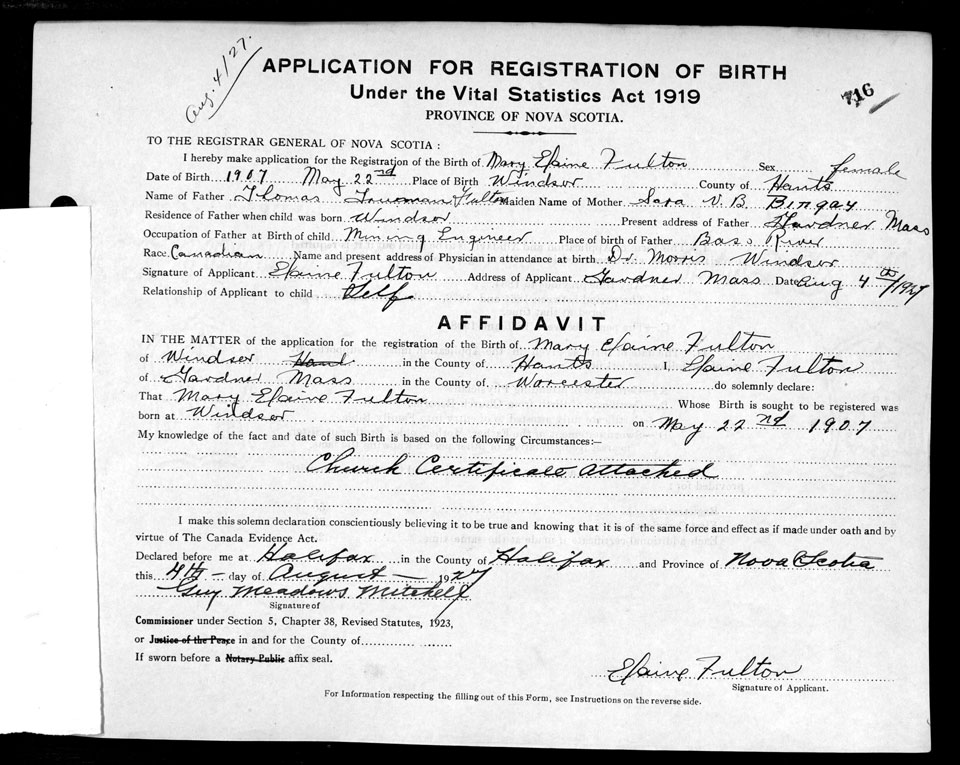 Aug. 4/27.
716
APPLICATION FOR REGISTRATION OF BIRTH
Under the Vital Statistics Act 1919
PROVINCE OF NOVA SCOTIA.
TO THE REGISTRAR GENERAL OF NOVA SCOTIA :
I hereby make application for the Registration of the Birth of Mary Elaine Fulton Sex female
Date of Birth 1907 May 22nd Place of Birth Windsor County of Hants
Name of Father Thomas Trueman Fulton Maiden Name of Mother Sara V. B. Bingay
Residence of Father when child was born Windsor Present address of Father Gardner Mass
Occupation of Father at Birth of child Mining Engineer Place of birth of Father Bass River
Race Canadian Name and present address of Physician in attendance at birth Dr. Morris Windsor
Signature of Applicant Elaine Fulton Address of Applicant Gardner Mass Date Aug 4th/1927
Relationship of Applicant to child Self
AFFIDAVIT
IN THE MATTER of the application for the registration of the Birth of Mary Elaine Fulton
of Windsor Hand in the County of Hants I, Elaine Fulton
of Gardner Mass in the County of Worcester do solemnly declare:
That Mary Elaine Fulton Whose Birth is sought to be registered was
born at Windsor on May 22nd 1907
My knowledge of the fact and date of such Birth is based on the following Circumstances:—
Church Certificate attached
I make this solemn declaration conscientiously believing it to be true and knowing that it is of the same force and effect as if made under oath and by
virtue of The Canada Evidence Act.
Declared before me at Halifax in the County of Halifax and Province of Nova Scotia
this 4th — day of August — 1927
Guy Meadows Mitchell
Signature of
Commissioner under Section 5, Chapter 38, Revised Statutes, 1923,
or Justice of the Peace in and for the County of
If sworn before a Notary Public affix seal.
Elaine Fulton
Signature of Applicant.
For Information respecting the filling out of this Form, see Instructions on the reverse side.